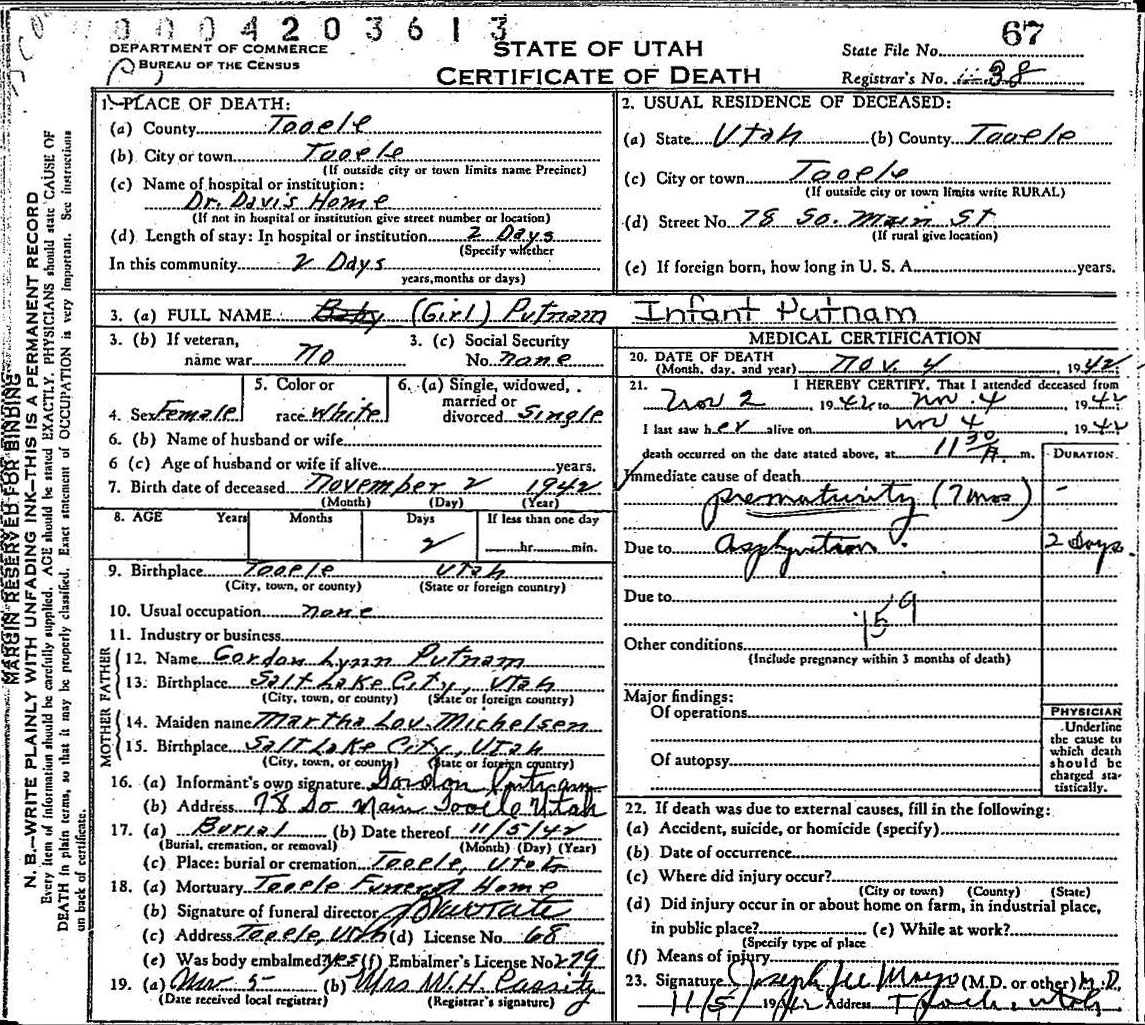 0004203613
DEPARTMENT OF COMMERCE
BUREAU OF THE CENSUS
STATE OF UTAH
CERTIFICATE OF DEATH
State File No. 67
Registrar's No. 38
MARGIN RESERVED FOR BINDING
N. B.—WRITE PLAINLY WITH UNFADING INK—THIS IS A PERMANENT RECORD
Every item of information should be carefully supplied. AGE should be stated EXACTLY. PHYSICIANS should state CAUSE OF
DEATH in plain terms, so that it may be properly classified. Exact statement of OCCUPATION is very important. See instructions
on back of certificate.
1. PLACE OF DEATH:
(a) County Tooele
(b) City or town Tooele
(If outside city or town limits name Precinct)
(c) Name of hospital or institution:
Dr. Davis Home
(If not in hospital or institution give street number or location)
(d) Length of stay: In hospital or institution 2 Days
(Specify whether
In this community 2 Days
years, months or days)
2. USUAL RESIDENCE OF DECEASED:
(a) State Utah (b) County Tooele
(c) City or town Tooele
(If outside city or town limits write RURAL)
(d) Street No. 78 So. Main St
(If rural give location)
(e) If foreign born, how long in U. S. A. years.
3. (a) FULL NAME Baby (Girl) Putnam Infant Putnam
3. (b) If veteran, name war no
3. (c) Social Security No. none
4. Sex Female
5. Color or race White
6. (a) Single, widowed, married or divorced Single
6. (b) Name of husband or wife
6 (c) Age of husband or wife if alive years.
7. Birth date of deceased November 2 1942
(Month) (Day) (Year)
8. AGE Years Months Days If less than one day
2 hr. min.
9. Birthplace Tooele Utah
(City, town, or county) (State or foreign country)
10. Usual occupation none
11. Industry or business
FATHER
12. Name Gordon Lynn Putnam
13. Birthplace Salt Lake City, Utah
(City, town, or county) (State or foreign country)
MOTHER
14. Maiden name Martha Lou Michelsen
15. Birthplace Salt Lake City, Utah
(City, town, or county) (State or foreign country)
16. (a) Informant's own signature Gordon Putnam
(b) Address 78 So Main Tooele Utah
17. (a) Burial (b) Date thereof 11/5/42
(Burial, cremation, or removal) (Month) (Day) (Year)
(c) Place: burial or cremation Tooele, Utah
18. (a) Mortuary Tooele Funeral Home
(b) Signature of funeral director
(c) Address Tooele, Utah (d) License No. 68
(e) Was body embalmed? yes (f) Embalmer's License No. 279
19. (a) Nov 5 (b) Mrs W. H. Cassity
(Date received local registrar) (Registrar's signature)
MEDICAL CERTIFICATION
20. DATE OF DEATH
(Month, day, and year) Nov. 4, 1942
21. I HEREBY CERTIFY, That I attended deceased from
Nov 2, 1942 to Nov. 4, 1942
I last saw her alive on Nov 4, 1942
death occurred on the date stated above, at 11 30 A. m.
DURATION
Immediate cause of death
prematurity (7 mos) -
Due to 2 Days
Due to
159
Other conditions
(Include pregnancy within 3 months of death)
Major findings:
Of operations
Of autopsy
PHYSICIAN
Underline
the cause to
which death
should be
charged sta-
tistically.
22. If death was due to external causes, fill in the following:
(a) Accident, suicide, or homicide (specify)
(b) Date of occurrence
(c) Where did injury occur?
(City or town) (County) (State)
(d) Did injury occur in or about home on farm, in industrial place,
in public place? (e) While at work?
(Specify type of place
(f) Means of injury
23. Signature Joseph Lee Mayo (M.D. or other) M.D.
11/5/1942 Address Tooele, Utah